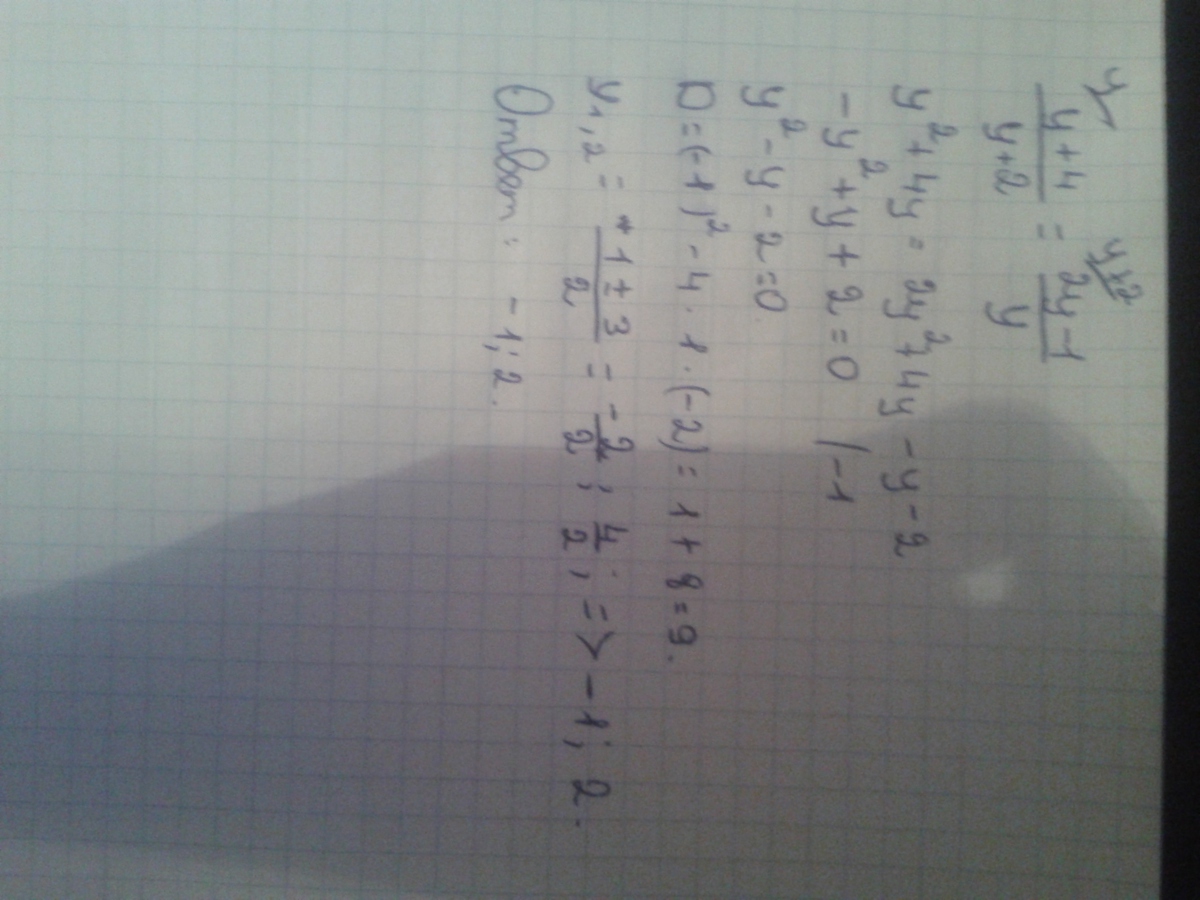 y y+2
y+4/y+2 = 2y-1/y
y²+4y = 2y²+4y-y-2
-y²+y+2=0 /-1
y²-y-2=0.
D=(-1)²-4·1·(-2)=1+8=9.
y1,2 = +1±3/2 = -2/2; 4/2; => -1; 2.
Ответ: -1; 2.